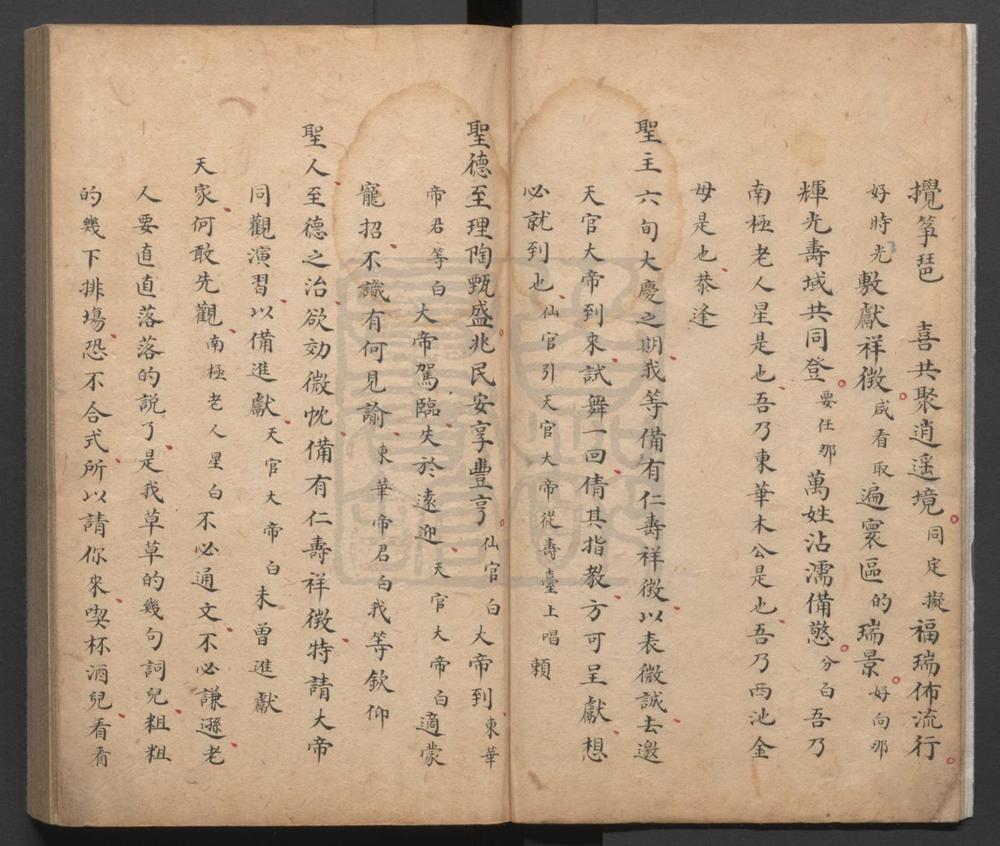 攪箏琶　喜共聚逍遥境同定擬福瑞佈流行
好時光敷獻祥徴咸看取遍寰區的瑞景好向那
輝光壽域共同登要任那萬姓沾濡備憼分白吾乃
南極老人星是也吾乃東華木公是也吾乃西池金
母是也恭逢
聖主六旬大慶之期我等備有仁壽祥徴以表微誠去邀
天官大帝到來試舞一回倩其指教方可呈獻想
必就到也仙官引天官大帝從壽臺上唱頼
聖德至理陶甄盛兆民安享豐亨仙官白大帝到東華
帝君等白大帝駕臨失於遠迎天官大帝白適蒙
寵招不識有何見諭東華帝君白我等欽仰
聖人至德之治欲効微忱備有仁壽祥徴特請大帝
同觀演習以備進獻天官大帝白未曾進獻
天家何敢先觀南極老人星白不必通文不必謙遜老
人要直直落落的說了是我草草的幾句詞兒粗粗
的幾下排塲恐不合式所以請你來喫杯酒兒看看